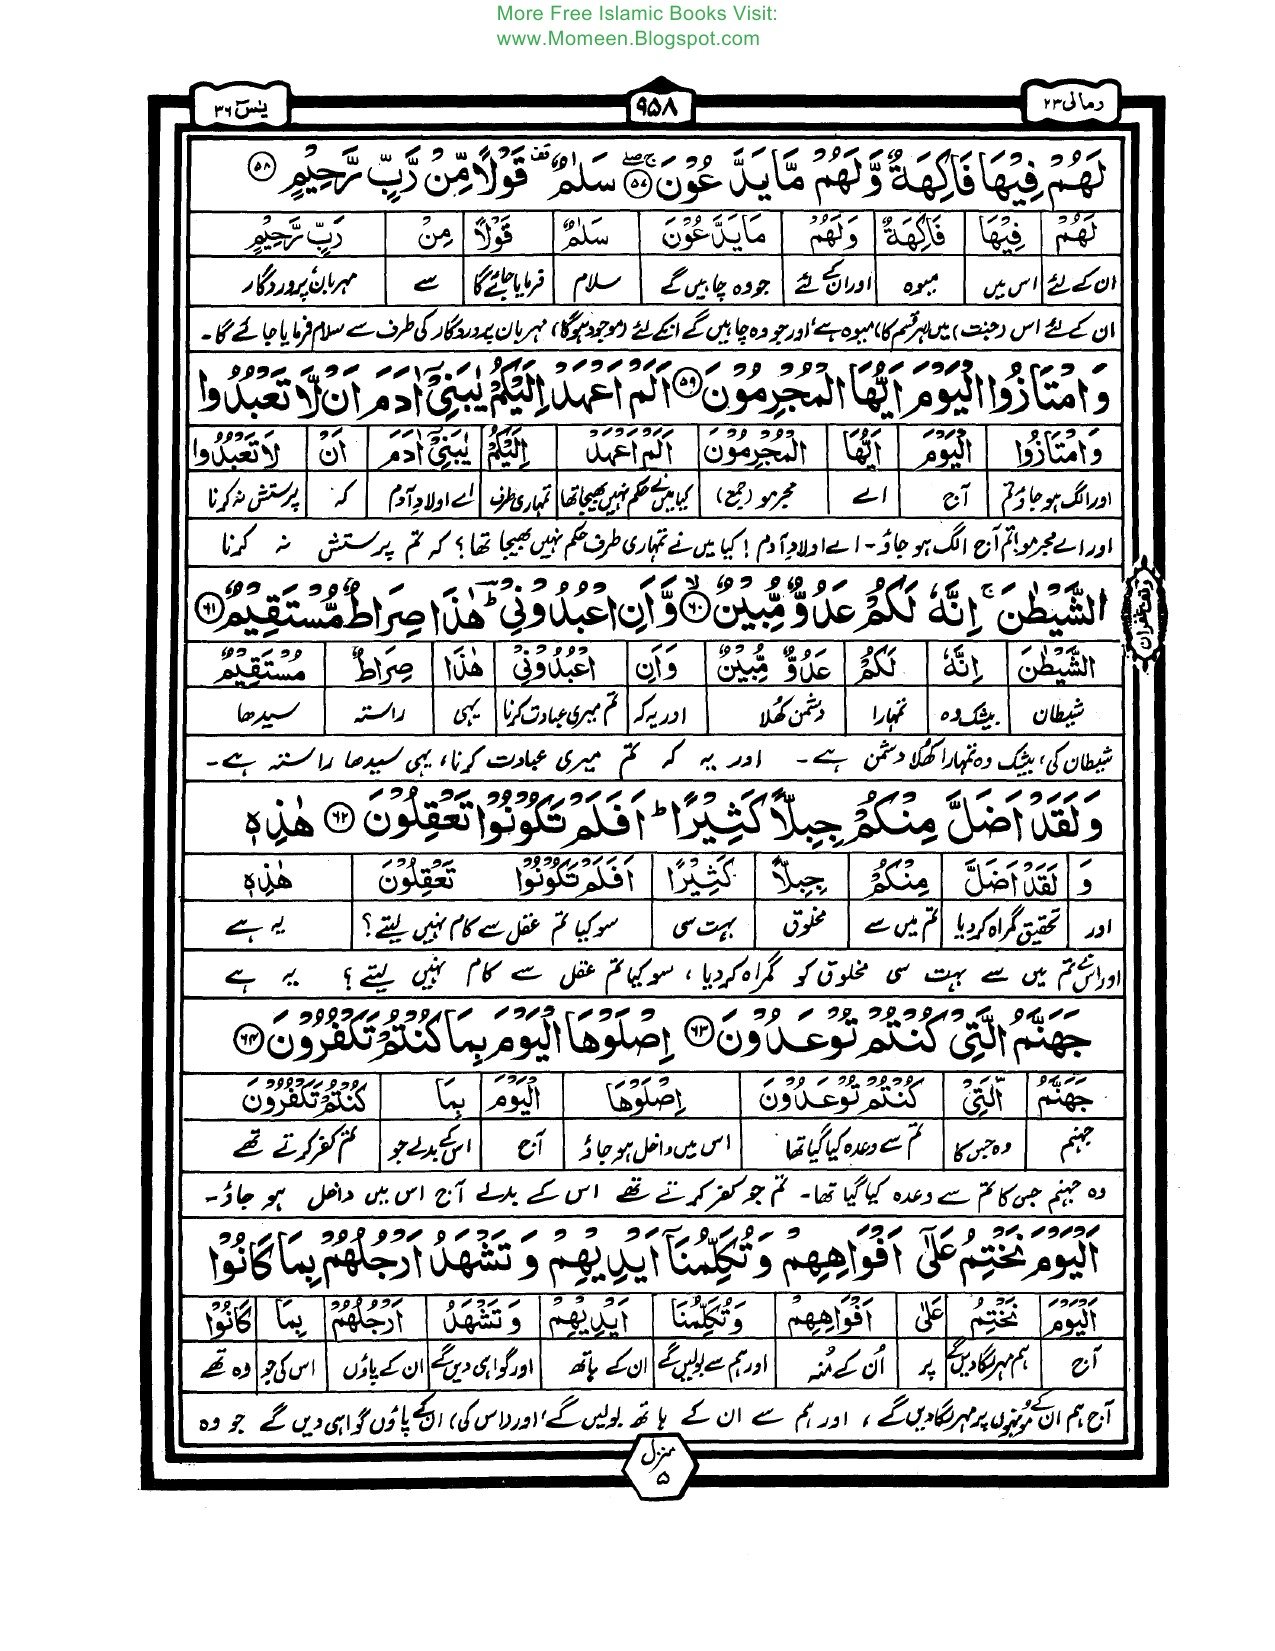 More Free Islamic Books Visit:
www.Momeen.Blogspot.com
ومالی ۲۳
۹۵۸
یٰسٓ ۳۶
لَهُمْ فِيْهَا فَاكِهَةٌ وَّلَهُمْ مَّا يَدَّعُوْنَ ۵۷ سَلٰمٌ قَوْلًا مِّنْ رَّبٍّ رَّحِيْمٍ ۵۸
لَهُمْ فِيْهَا فَاكِهَةٌ وَلَهُمْ مَا يَدَّعُوْنَ سَلٰمٌ قَوْلًا مِنْ رَبٍّ رَّحِيْمٍ
ان کے لئے اس میں میوہ اور ان کے لئے جو وہ چاہیں گے سلام فرمایا جائے گا سے مہربان پروردگار
ان کے لئے اس (جنت) میں (ہر قسم کا) میوہ ہے، اور جو وہ چاہیں گے انکے لئے (موجود ہوگا)، مہربان پروردگار کی طرف سے سلام فرمایا جائے گا۔
وَامْتَازُوا الْيَوْمَ اَيُّهَا الْمُجْرِمُوْنَ ۵۹ اَلَمْ اَعْهَدْ اِلَيْكُمْ يٰبَنِيْٓ اٰدَمَ اَنْ لَّا تَعْبُدُوا
وَامْتَازُوا الْيَوْمَ اَيُّهَا الْمُجْرِمُوْنَ اَلَمْ اَعْهَدْ اِلَيْكُمْ يٰبَنِيْٓ اٰدَمَ اَنْ لَا تَعْبُدُوا
اور الگ ہو جاؤ تم آج اے مجرمو (جمع) کیا میں نے حکم نہیں بھیجا تھا تمہاری طرف اے اولادِ آدم کہ پرستش نہ کرنا
اور اے مجرمو! تم آج الگ ہو جاؤ۔ اے اولادِ آدم! کیا میں نے تمہاری طرف حکم نہیں بھیجا تھا؟ کہ تم پرستش نہ کرنا
الشَّيْطٰنَ ۚ اِنَّهٗ لَكُمْ عَدُوٌّ مُّبِيْنٌ ۶۰ وَّاَنِ اعْبُدُوْنِيْ ؕ هٰذَا صِرَاطٌ مُّسْتَقِيْمٌ ۶۱
الشَّيْطٰنَ اِنَّهٗ لَكُمْ عَدُوٌّ مُّبِيْنٌ وَاَنِ اعْبُدُوْنِيْ هٰذَا صِرَاطٌ مُسْتَقِيْمٌ
شیطان بیشک وہ تمہارا دشمن کھلا اور یہ کہ تم میری عبادت کرنا یہی راستہ سیدھا
شیطان کی، بیشک وہ تمہارا کھلا دشمن ہے۔ اور یہ کہ تم میری عبادت کرنا، یہی سیدھا راستہ ہے۔
وقف غفران
وَلَقَدْ اَضَلَّ مِنْكُمْ جِبِلًّا كَثِيْرًا ؕ اَفَلَمْ تَكُوْنُوْا تَعْقِلُوْنَ ۶۲ هٰذِهٖ
وَ لَقَدْ اَضَلَّ مِنْكُمْ جِبِلًّا كَثِيْرًا اَفَلَمْ تَكُوْنُوْا تَعْقِلُوْنَ هٰذِهٖ
اور تحقیق گمراہ کردیا تم میں سے مخلوق بہت سی سو کیا تم عقل سے کام نہیں لیتے؟ یہ ہے
اور اس نے تم میں سے بہت سی مخلوق کو گمراہ کردیا، سو کیا تم عقل سے کام نہیں لیتے؟ یہ ہے
جَهَنَّمُ الَّتِيْ كُنْتُمْ تُوْعَدُوْنَ ۶۳ اِصْلَوْهَا الْيَوْمَ بِمَا كُنْتُمْ تَكْفُرُوْنَ ۶۴
جَهَنَّمُ الَّتِيْ كُنْتُمْ تُوْعَدُوْنَ اِصْلَوْهَا الْيَوْمَ بِمَا كُنْتُمْ تَكْفُرُوْنَ
جہنم وہ جس کا تم سے وعدہ کیا گیا تھا اس میں داخل ہو جاؤ آج اس کے بدلے جو تم کفر کرتے تھے
وہ جہنم جس کا تم سے وعدہ کیا گیا تھا۔ تم جو کفر کرتے تھے اس کے بدلے آج اس میں داخل ہو جاؤ۔
اَلْيَوْمَ نَخْتِمُ عَلٰٓى اَفْوَاهِهِمْ وَتُكَلِّمُنَآ اَيْدِيْهِمْ وَتَشْهَدُ اَرْجُلُهُمْ بِمَا كَانُوْا
اَلْيَوْمَ نَخْتِمُ عَلٰٓى اَفْوَاهِهِمْ وَتُكَلِّمُنَا اَيْدِيْهِمْ وَتَشْهَدُ اَرْجُلُهُمْ بِمَا كَانُوْا
آج ہم مہر لگا دیں گے پر اُن کے مُنہ اور ہم سے بولیں گے ان کے ہاتھ اور گواہی دیں گے ان کے پاؤں اس کی جو وہ تھے
آج ہم ان کے مونہوں پر مہر لگا دیں گے، اور ہم سے ان کے ہاتھ بولیں گے، اور (اس کی) ان کے پاؤں گواہی دیں گے جو وہ
منزل
۵